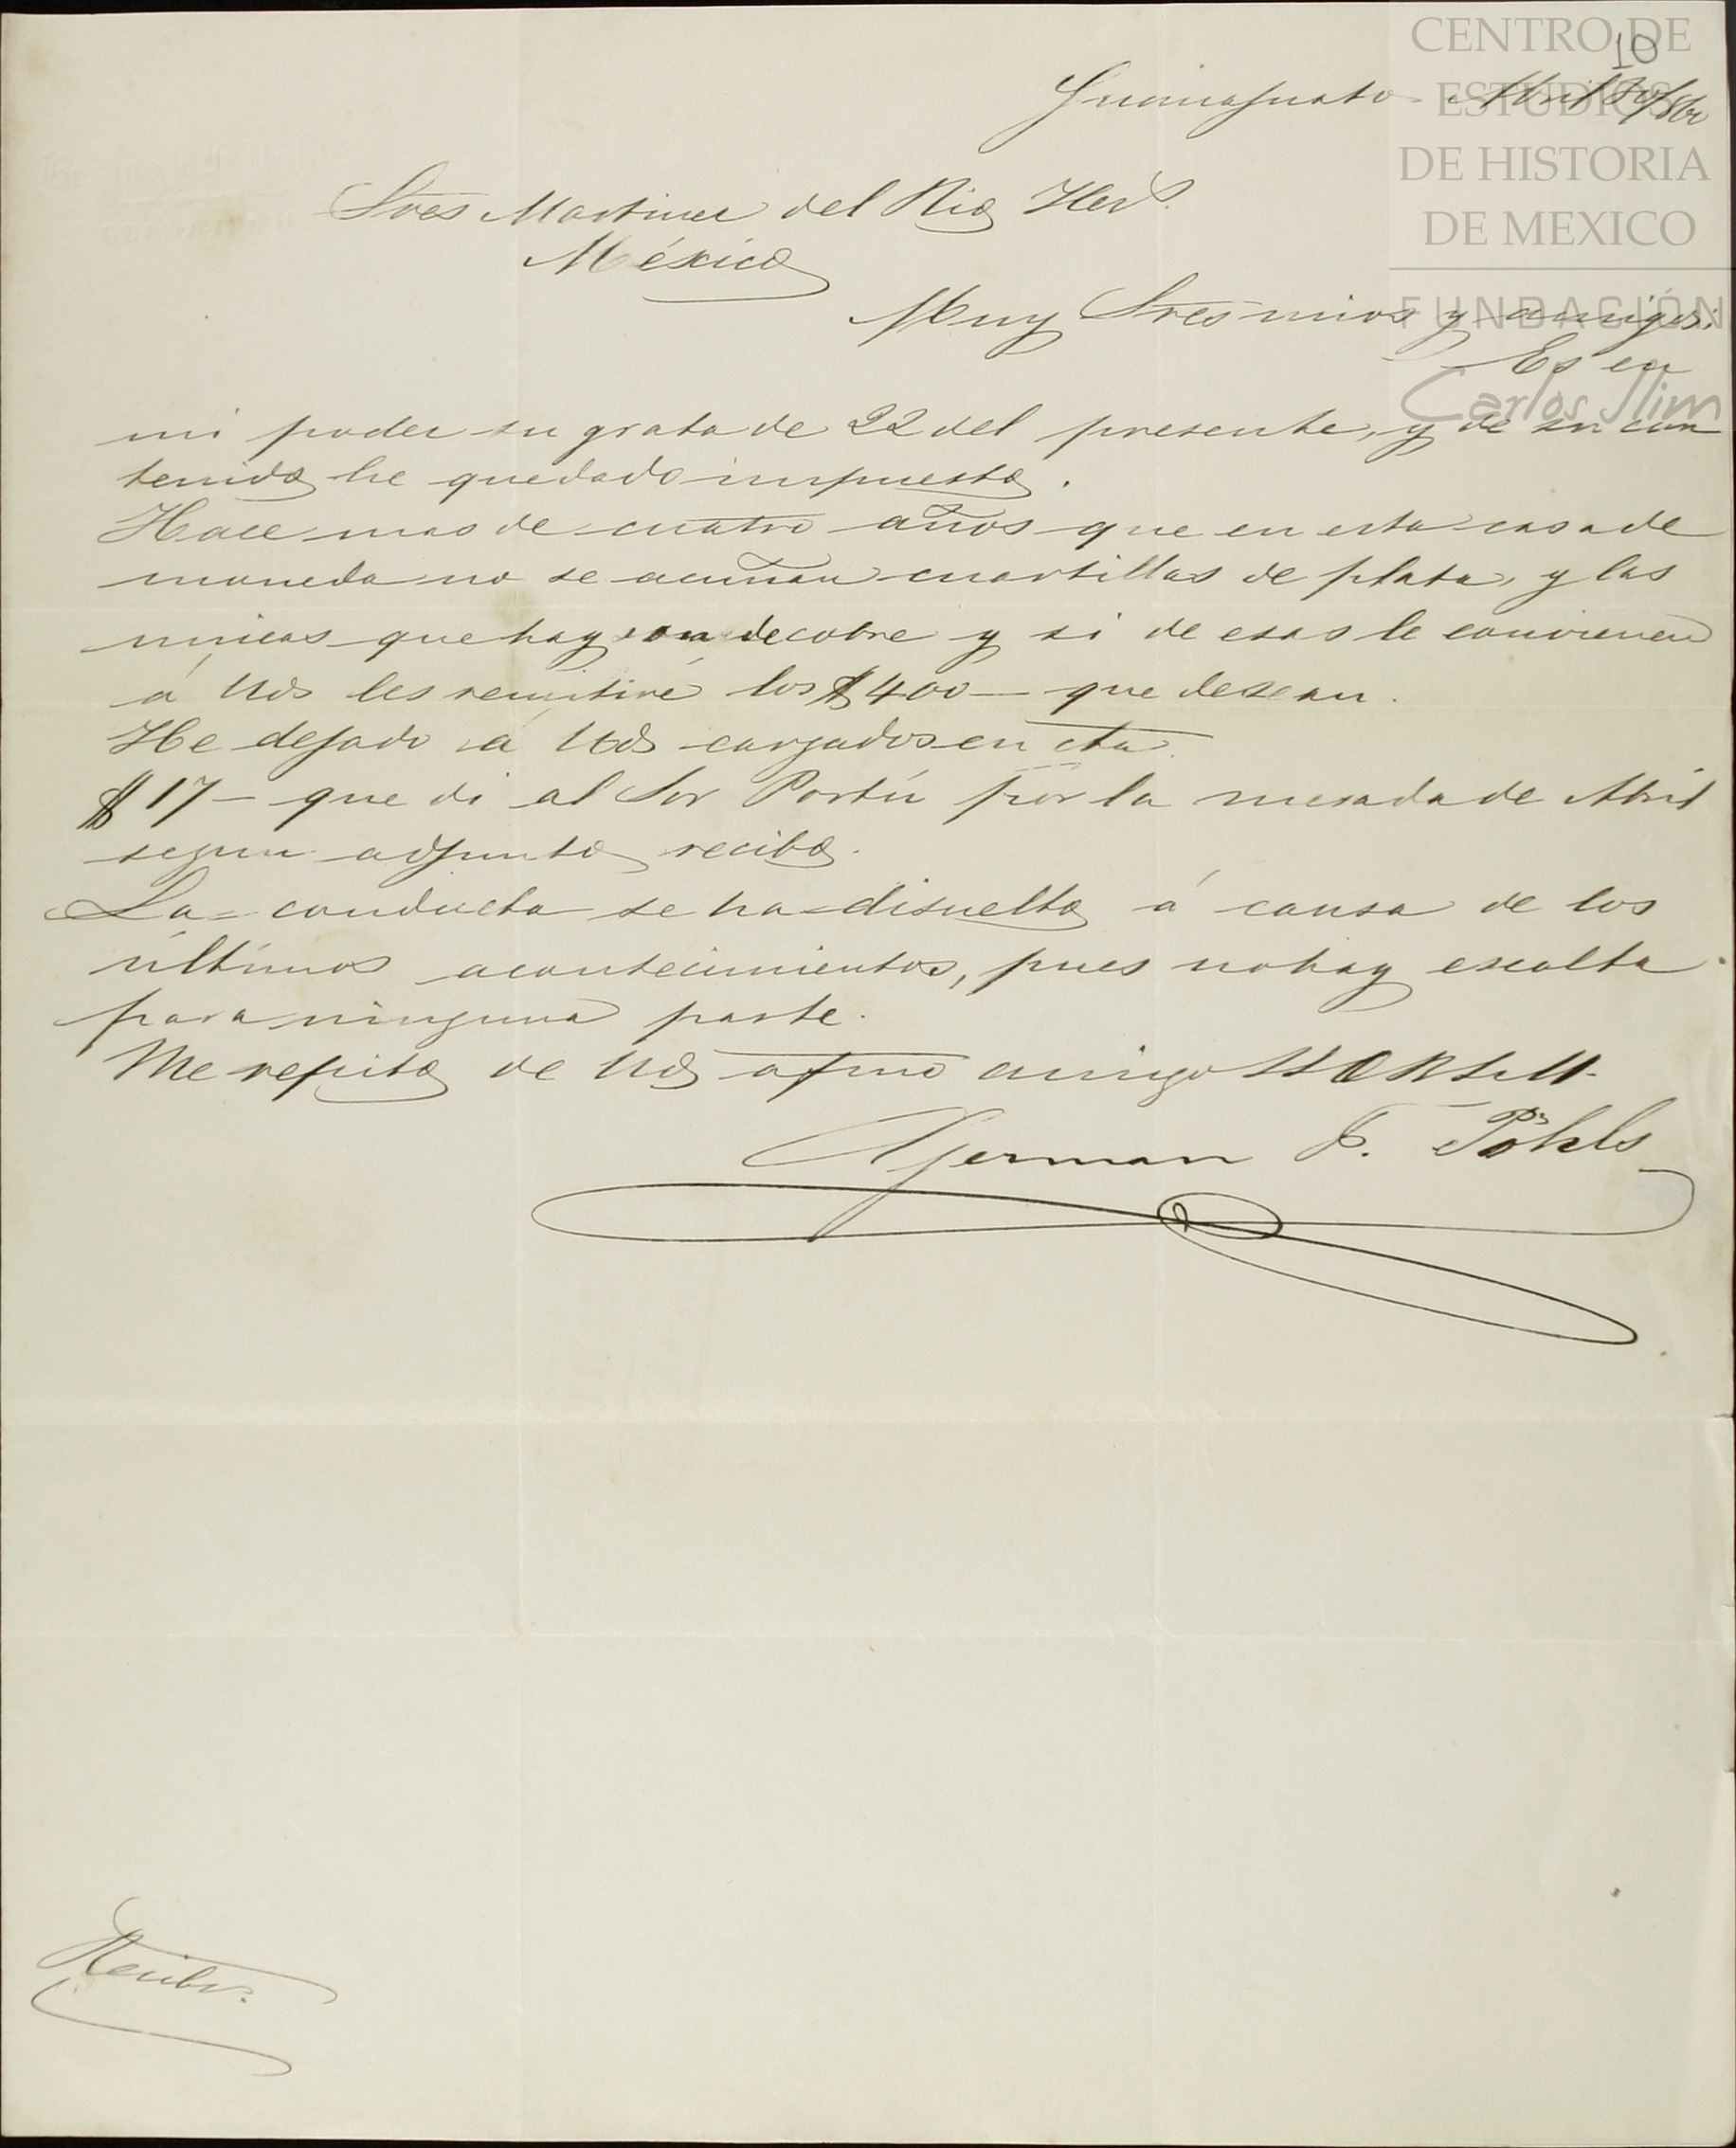 CENTRO DE
ESTUDIOS
DE HISTORIA
DE MEXICO
FUNDACIÓN
Carlos Slim
10
Guanajuato Abril
Sres Martinez del Rio Hers.
México
Muy Sres mios y amigos:
Es en
mi poder su grata de 22 del presente, y de su con
tenido he quedado impuesto.
Hace mas de cuatro años que en esta casa de
moneda no se acuñan cuartillas de plata, y las
unicas que hay son de cobre y si de esas le convienen
á Uds les remitiré los $400 — que desean.
He dejado á Uds cargados en cta.
$17 — que di al Sor Portú por la mesada de Abril
segun adjunto recibo.
La conducta se ha disuelto á causa de los
últimos acontecimientos, pues no hay escolta
para ninguna parte.
Me repito de Uds afmo amigo
German F. Pöhls
Recibo.